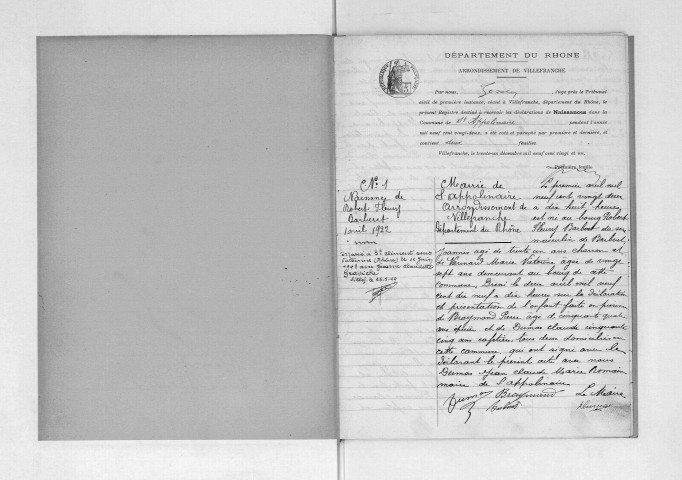 DÉPARTEMENT DU RHONE
ARRONDISSEMENT DE VILLEFRANCHE
Par nous, juge près le Tribunal
civil de première instance, séant à Villefranche, département du Rhône, le
présent Registre destiné à recevoir les déclarations de Naissances dans la
Commune de St Appolinaire pendant l'année
mil neuf cent vingt-deux, a été coté et paraphé par première et dernière, et
contient feuilles.
Villefranche, le trente-un décembre mil neuf cent vingt et un.
Première feuille.
N° 1
Naissance de
Robert Fleury
Barberet
1 avril 1922
Marié à St Clément sous
Valsonne (Rhône) le 12 Juin
avec
Mairie de
S'appolinaire
Arrondissement de
Villefranche
Département du Rhône
Le premier avril mil
neuf cent vingt deux
à dix huit heures
est né au bourg Robert
Fleury du sexe
masculin de
Joannes agé de trente un ans charron et
de Marie agée de vingt
sept ans demeurant au bourg de cette
commune. Dressé le deux avril mil neuf
cent à dix heures sur la déclaration
et présentation de l'enfant faite en présence
de Braymand Pierre agé de cinquante quatre
ans et de Dumas claude cinquante
cinq ans cafetier tous deux domiciliés en
cette commune qui ont signé avec le
déclarant le présent acte avec nous
Dumas Jean claude Marie Romain
maire de S'appolinaire
Dumas Braymand Le Maire
Dumas